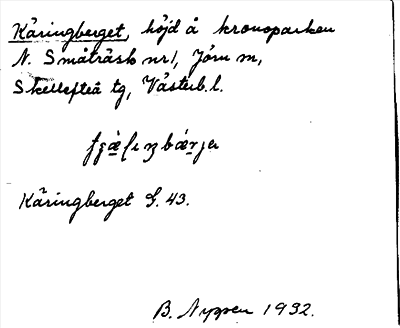 Käringberget, höjd å kronoparken
N. Småträsk nr 1, Jörn m,
Skellefteå tg, Västerb. l.
Käringberget S. 43.
B. Nygren 1932.